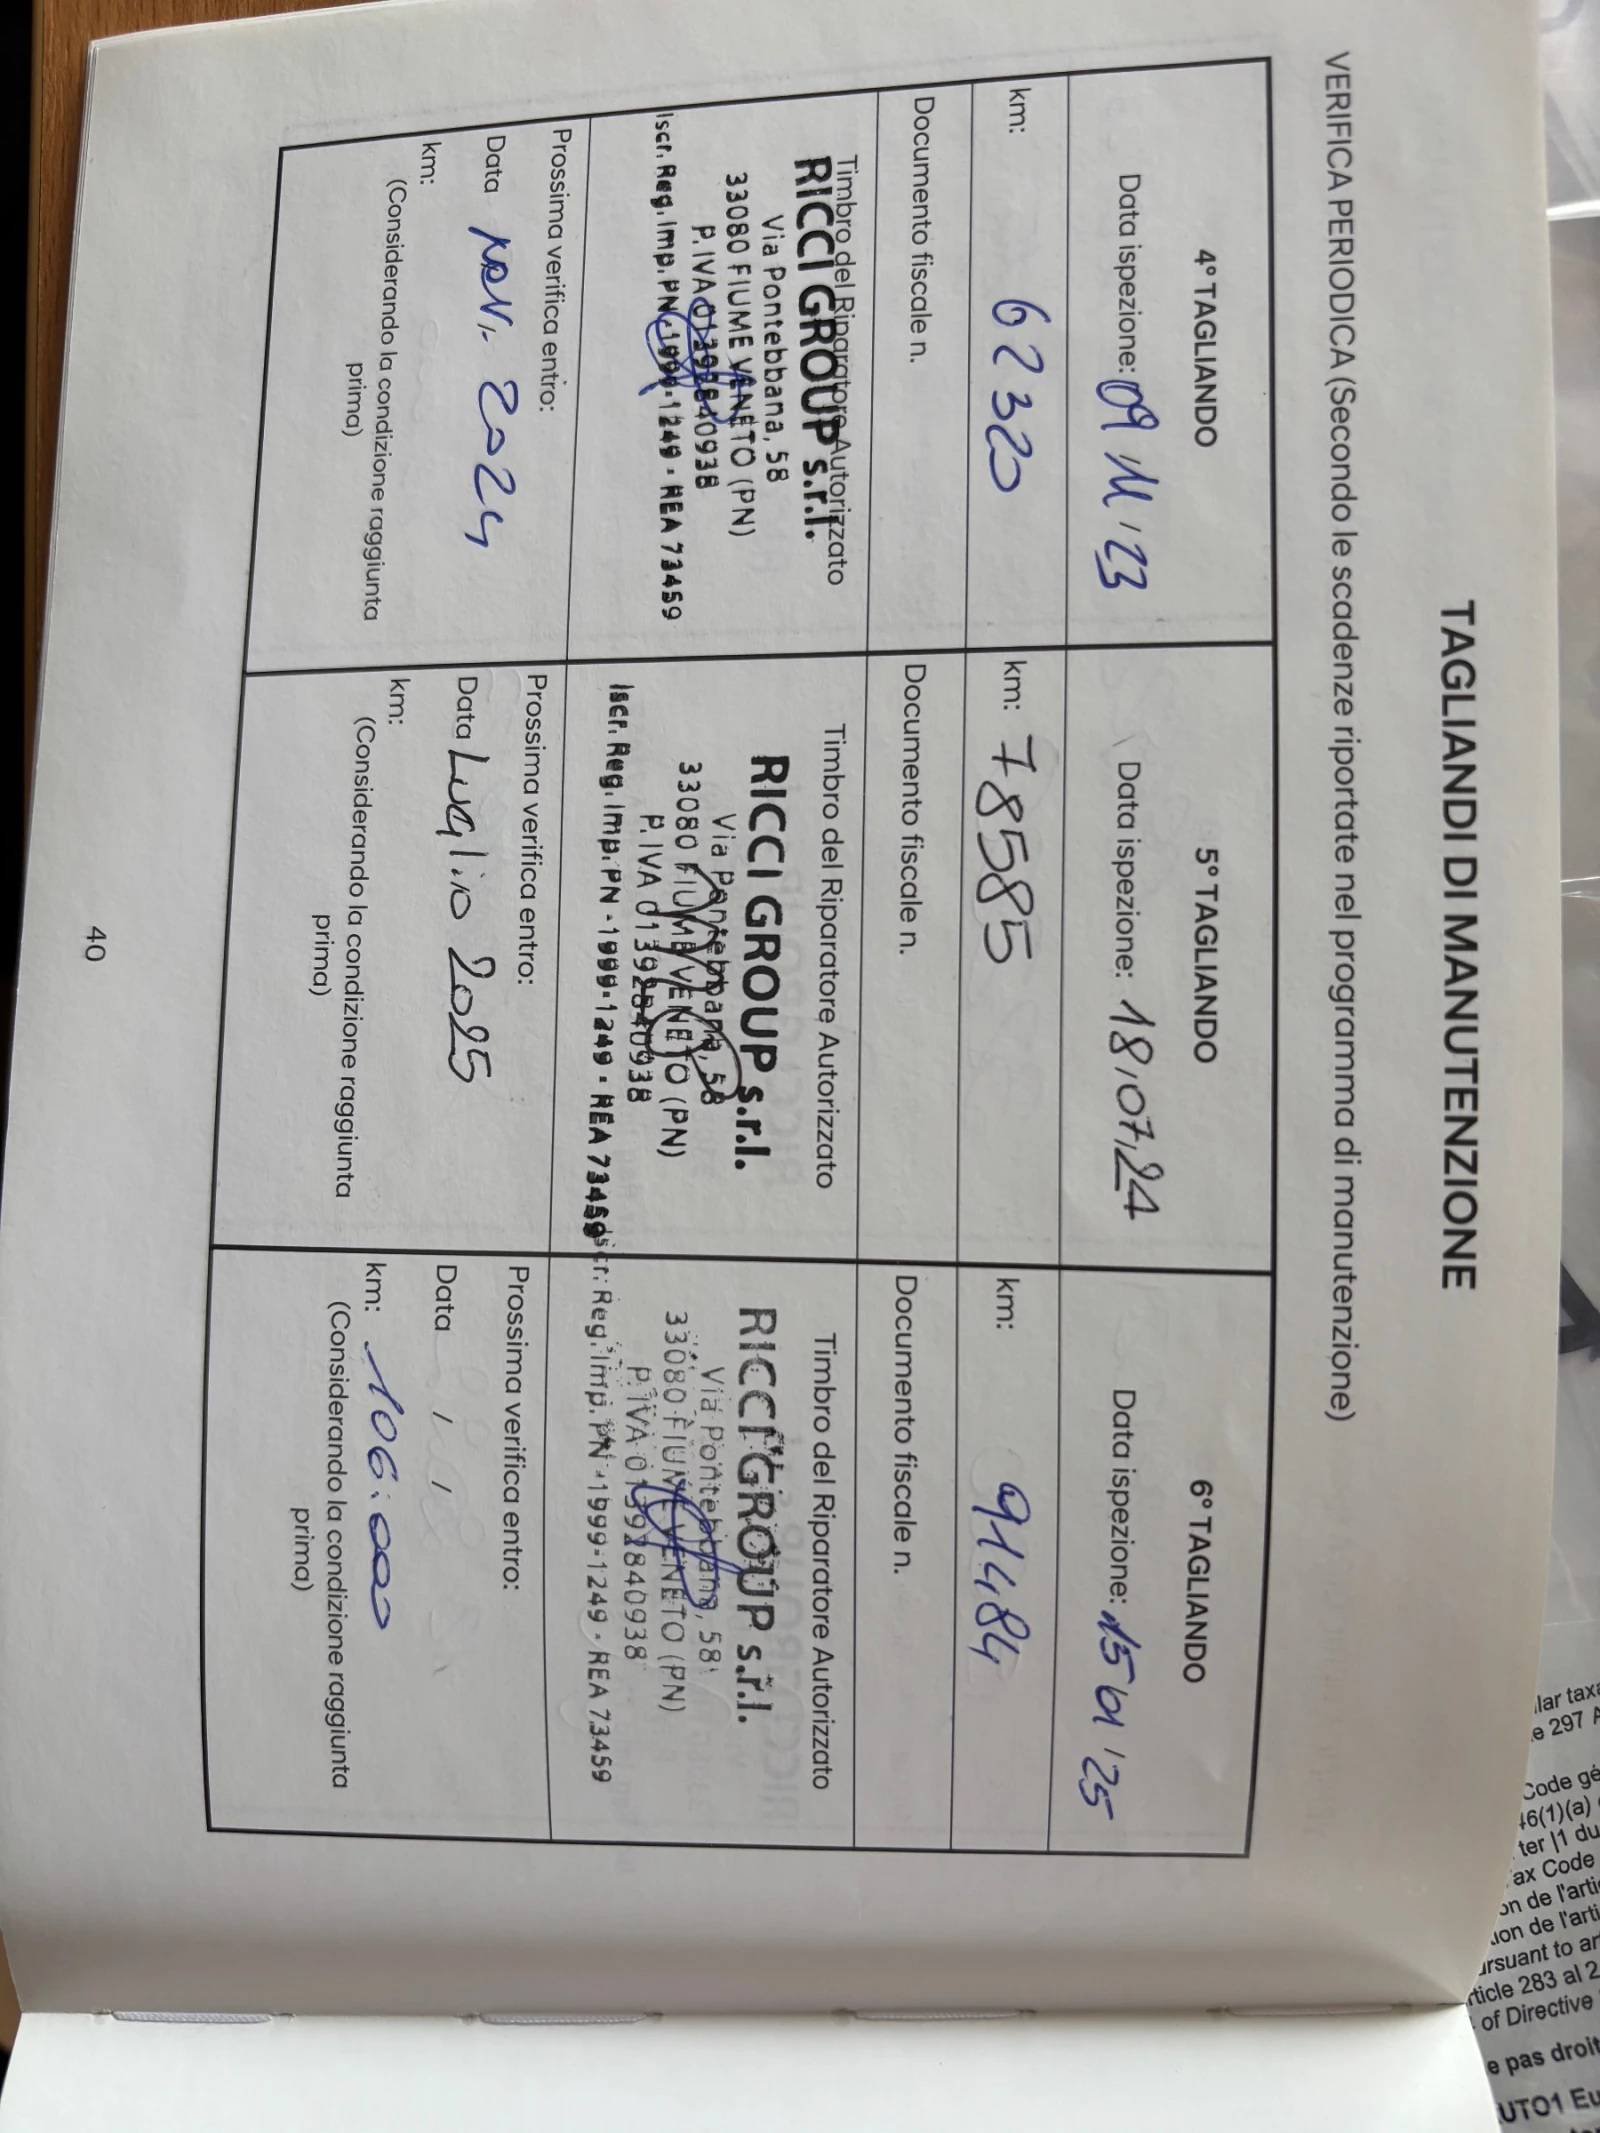 TAGLIANDI DI MANUTENZIONE
VERIFICA PERIODICA (Secondo le scadenze riportate nel programma di manutenzione)
4° TAGLIANDO
Data ispezione: 09/11/23
km: 62320
Documento fiscale n.
Timbro del Riparatore Autorizzato
RICCI GROUP s.r.l.
Via Pontebbana, 58
33080 FIUME VENETO (PN)
P. IVA 01392840938
Iscr. Reg. Imp. PN - 1999-1249 - REA 73459
Prossima verifica entro:
Data Nov. 2024
km:
(Considerando la condizione raggiunta
prima)
5° TAGLIANDO
Data ispezione: 18/07/24
km: 78585
Documento fiscale n.
Timbro del Riparatore Autorizzato
RICCI GROUP s.r.l.
Via Pontebbana, 58
33080 FIUME VENETO (PN)
P. IVA 01392840938
Iscr. Reg. Imp. PN - 1999-1249 - REA 73459
Prossima verifica entro:
Data Luglio 2025
km:
(Considerando la condizione raggiunta
prima)
6° TAGLIANDO
Data ispezione: 15/01/25
km: 91484
Documento fiscale n.
Timbro del Riparatore Autorizzato
RICCI GROUP s.r.l.
Via Pontebbana, 58
33080 FIUME VENETO (PN)
P. IVA 01392840938
Iscr. Reg. Imp. PN - 1999-1249 - REA 73459
Prossima verifica entro:
Data / /
km: 106.000
(Considerando la condizione raggiunta
prima)
40
lar taxa
e 297 A
Code gé
46(1)(a)
ter |1 du
ax Code
on de l'arti
ion de l'arti
ursuant to ar
rticle 283 al 2
of Directive
e pas droit
UTO1 Eu